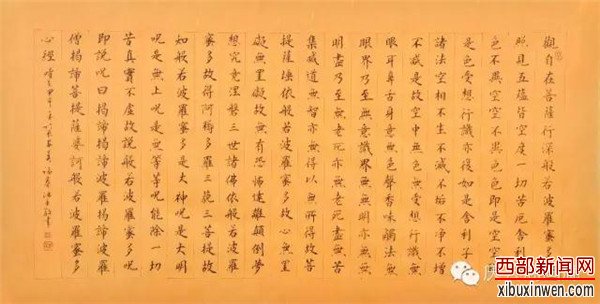 觀自在菩薩行深般若波羅蜜多時
照見五蘊皆空度一切苦厄舍利子
色不異空空不異色色即是空空即
是色受想行識亦復如是舍利子是
諸法空相不生不滅不垢不淨不增
不減是故空中無色無受想行識無
眼耳鼻舌身意無色聲香味觸法無
眼界乃至無意識界無無明亦無無
明盡乃至無老死亦無老死盡無苦
集滅道無智亦無得以無所得故菩
提薩埵依般若波羅蜜多故心無罣
礙無罣礙故無有恐怖遠離顛倒夢
想究竟涅槃三世諸佛依般若波羅
蜜多故得阿耨多羅三藐三菩提故
知般若波羅蜜多是大神咒是大明
咒是無上咒是無等等咒能除一切
苦真實不虛故說般若波羅蜜多咒
即說咒曰揭諦揭諦波羅揭諦波羅
僧揭諦菩提薩婆訶般若波羅蜜多
心經
西部新闻网
xibuxinwen.com